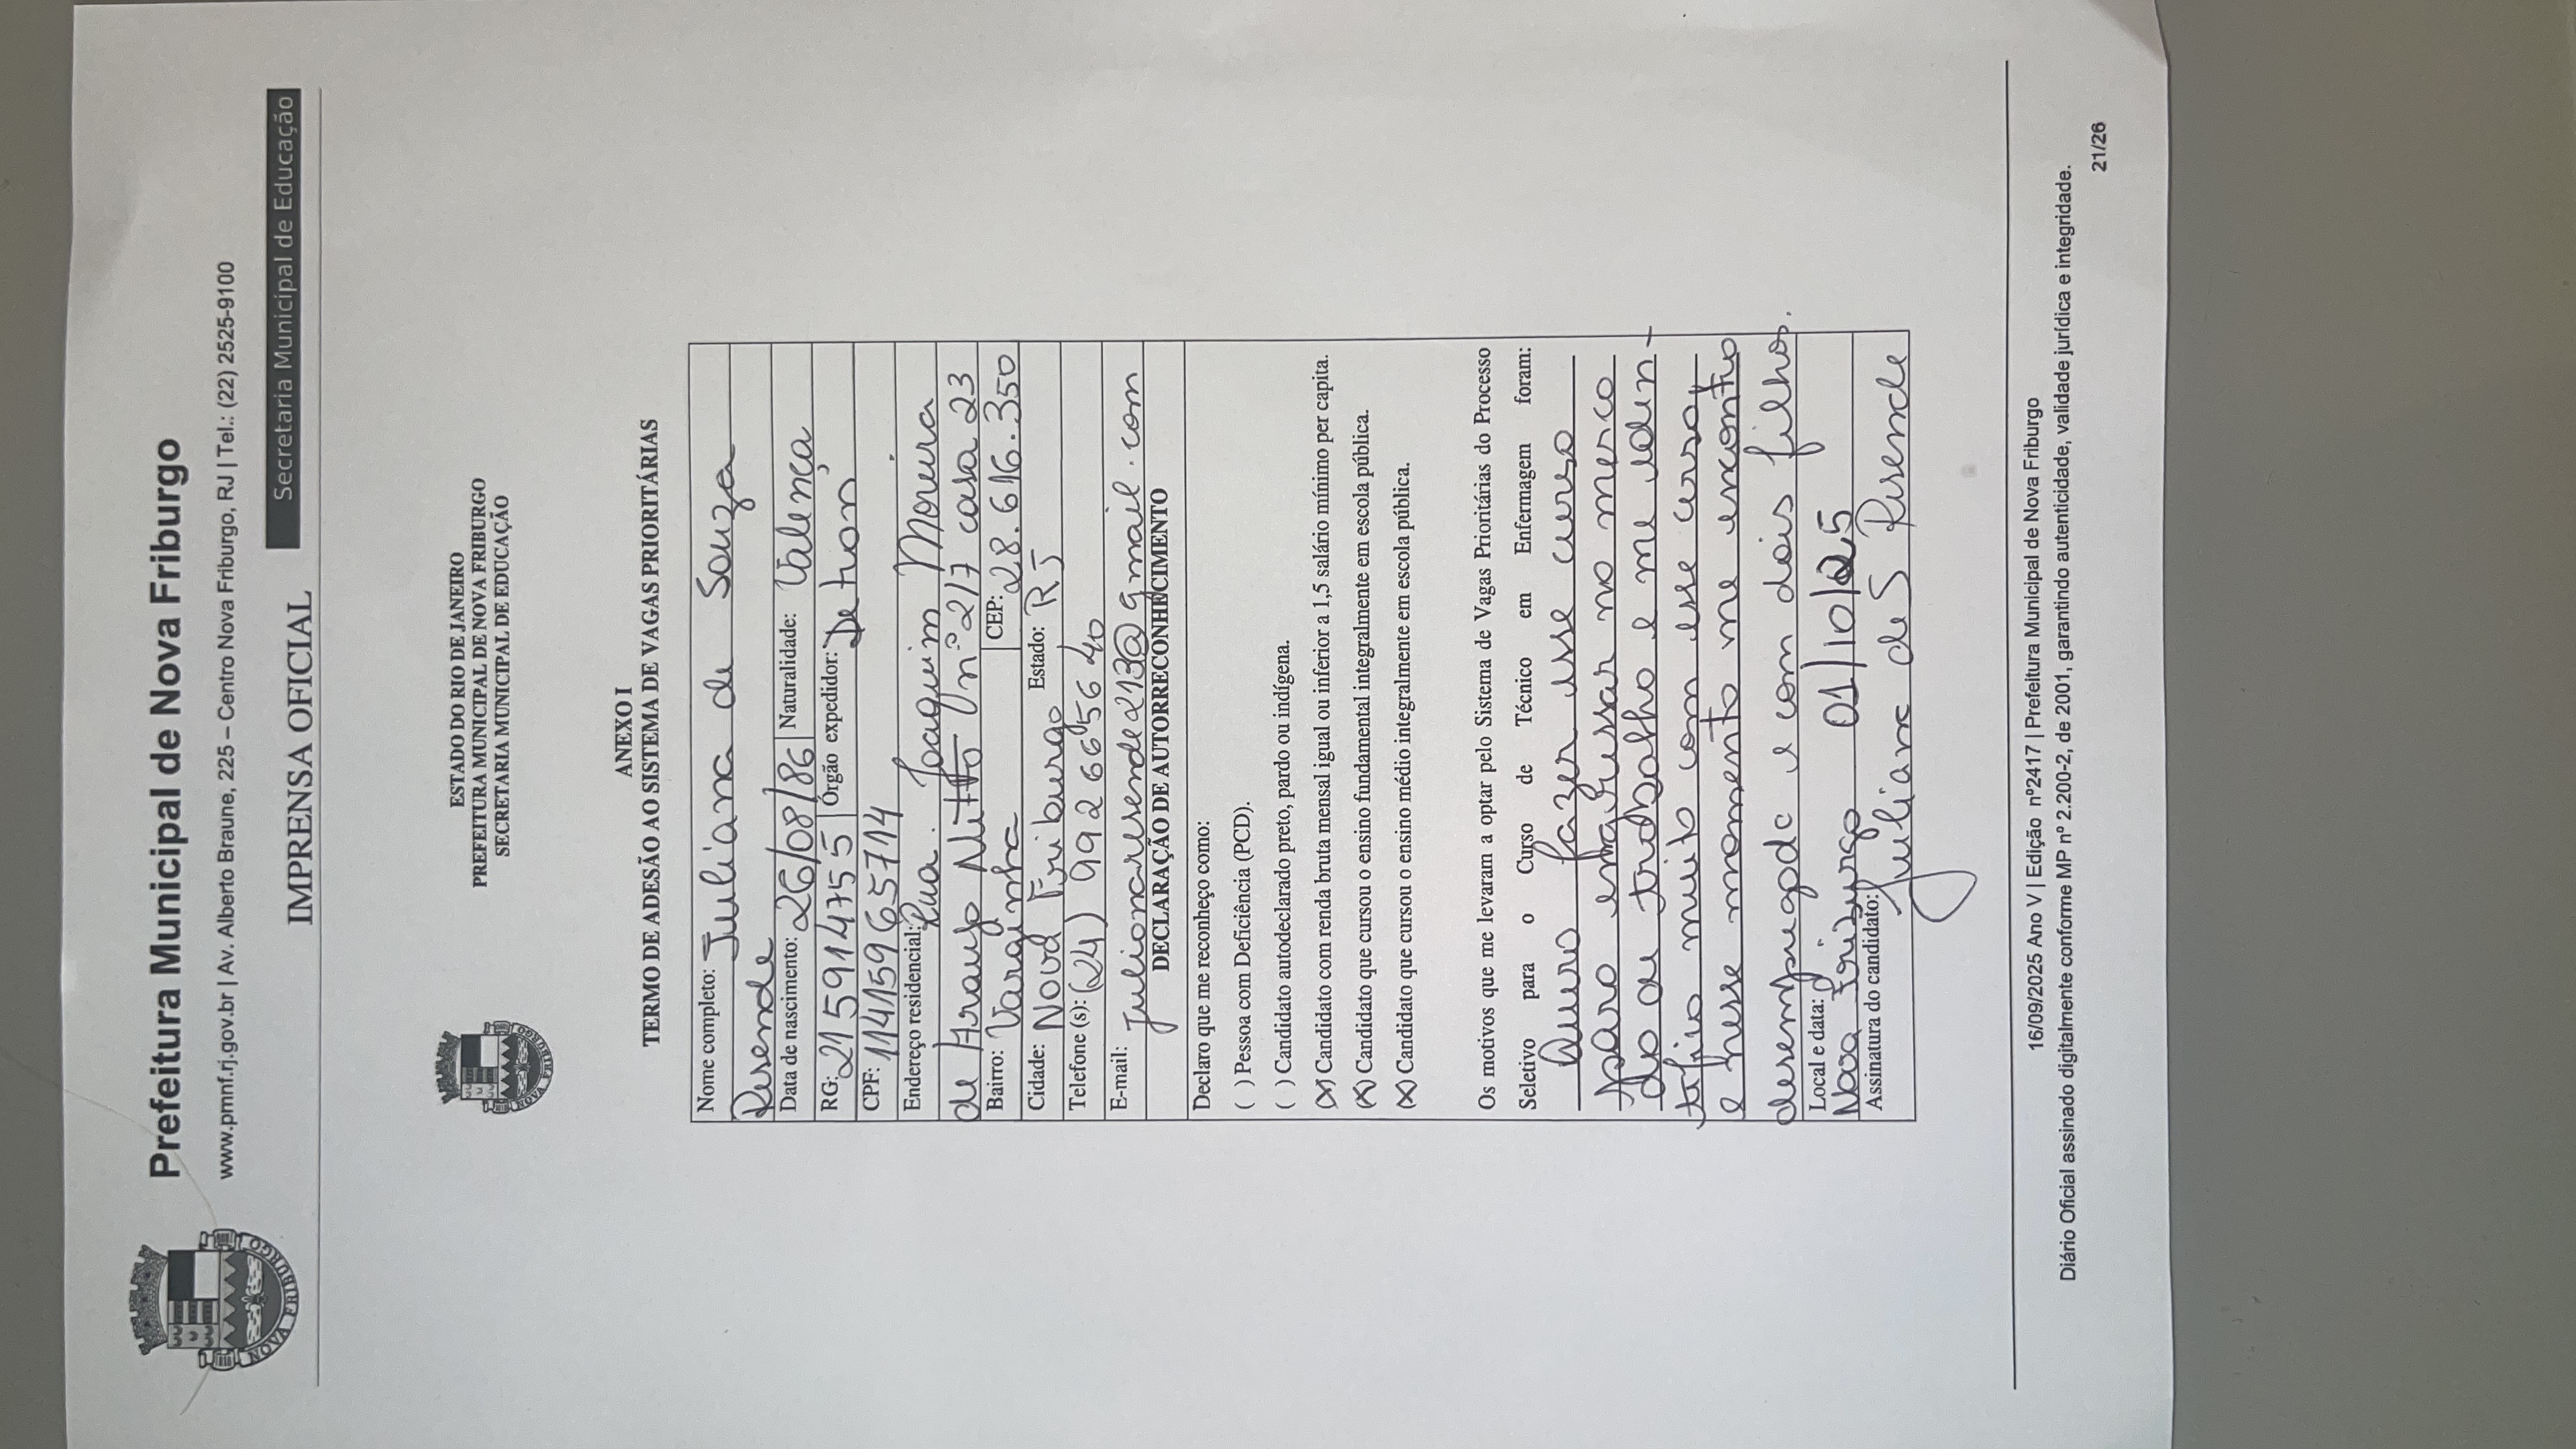 Prefeitura Municipal de Nova Friburgo
www.pmnf.rj.gov.br | Av. Alberto Braune, 225 – Centro Nova Friburgo, RJ | Tel.: (22) 2525-9100
Secretaria Municipal de Educação
IMPRENSA OFICIAL
NOVA FRIBURGO
ESTADO DO RIO DE JANEIRO
PREFEITURA MUNICIPAL DE NOVA FRIBURGO
SECRETARIA MUNICIPAL DE EDUCAÇÃO
NOVA FRIBURGO
ANEXO I
TERMO DE ADESÃO AO SISTEMA DE VAGAS PRIORITÁRIAS
Nome completo: Juliana de Souza
Resende
Data de nascimento: 26/08/86 Naturalidade: Valença
RG: 215914755 Órgão expedidor: Detran
CPF: 11415965714
Endereço residencial: Rua. Joaquim Moreira
de Araujo Nitto nº 217 casa 23
Bairro: Varginha CEP: 28.616.350
Cidade: Nova Friburgo Estado: RJ
Telefone (s): (24) 992665640
E-mail: julianaresende213@gmail.com
DECLARAÇÃO DE AUTORRECONHECIMENTO
Declaro que me reconheço como:
( ) Pessoa com Deficiência (PCD).
( ) Candidato autodeclarado preto, pardo ou indígena.
(X) Candidato com renda bruta mensal igual ou inferior a 1,5 salário mínimo per capita.
(X) Candidato que cursou o ensino fundamental integralmente em escola pública.
(X) Candidato que cursou o ensino médio integralmente em escola pública.
Os motivos que me levaram a optar pelo Sistema de Vagas Prioritárias do Processo
Seletivo para o Curso de Técnico em Enfermagem foram:
Quero fazer esse curso
para engressar no merca
do de trabalho e me iden-
tifico muito com esse curso,
e nesse momento me encontro
desempregada e com dois filhos.
Local e data:
Nova Friburgo 01/10/25
Assinatura do candidato: Juliana de S Resende
16/09/2025 Ano V | Edição nº2417 | Prefeitura Municipal de Nova Friburgo
Diário Oficial assinado digitalmente conforme MP nº 2.200-2, de 2001, garantindo autenticidade, validade jurídica e integridade.
21/26